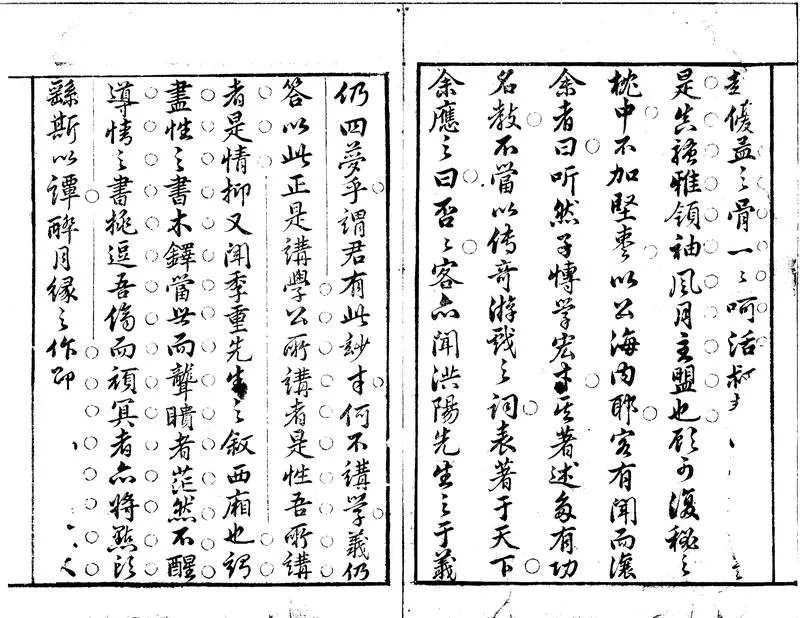 俊孟之骨一一呵活
是真騷雅領袖風月主盟也顧可復秘之
枕中不加堅棗以公海內耶客有聞而讓
余者曰听然子慱学宏才其著述多有功
名教不當以傳奇游戲之詞表著于天下
余應之曰否々客亦聞洪陽先生之于義
仍四夢乎謂君有此妙才何不講学義仍
答以此正是講學公所講者是性吾所講
者是情抑又聞季重先生之叙西廂也謂
盡性之書木鐸當世而聾聵者茫然不醒
導情之書挑逗吾儕而頑冥者亦將點頭
繇斯以譚醉月緣之作即